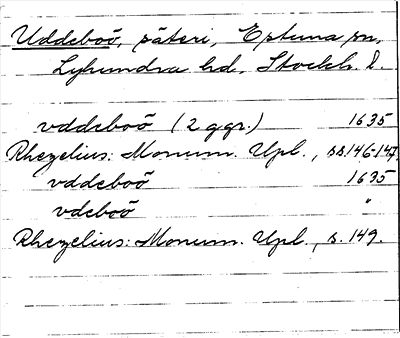 Uddeboö, säteri, Estuna sn,
Lyhundra hd, Stockh. l.
vddeboö (2 ggr.) 1635
Rhezelius: Monum. Upl., ss. 146-147.
vddeboö 1635
vdeboö "
Rhezelius: Monum. Upl., s. 149.